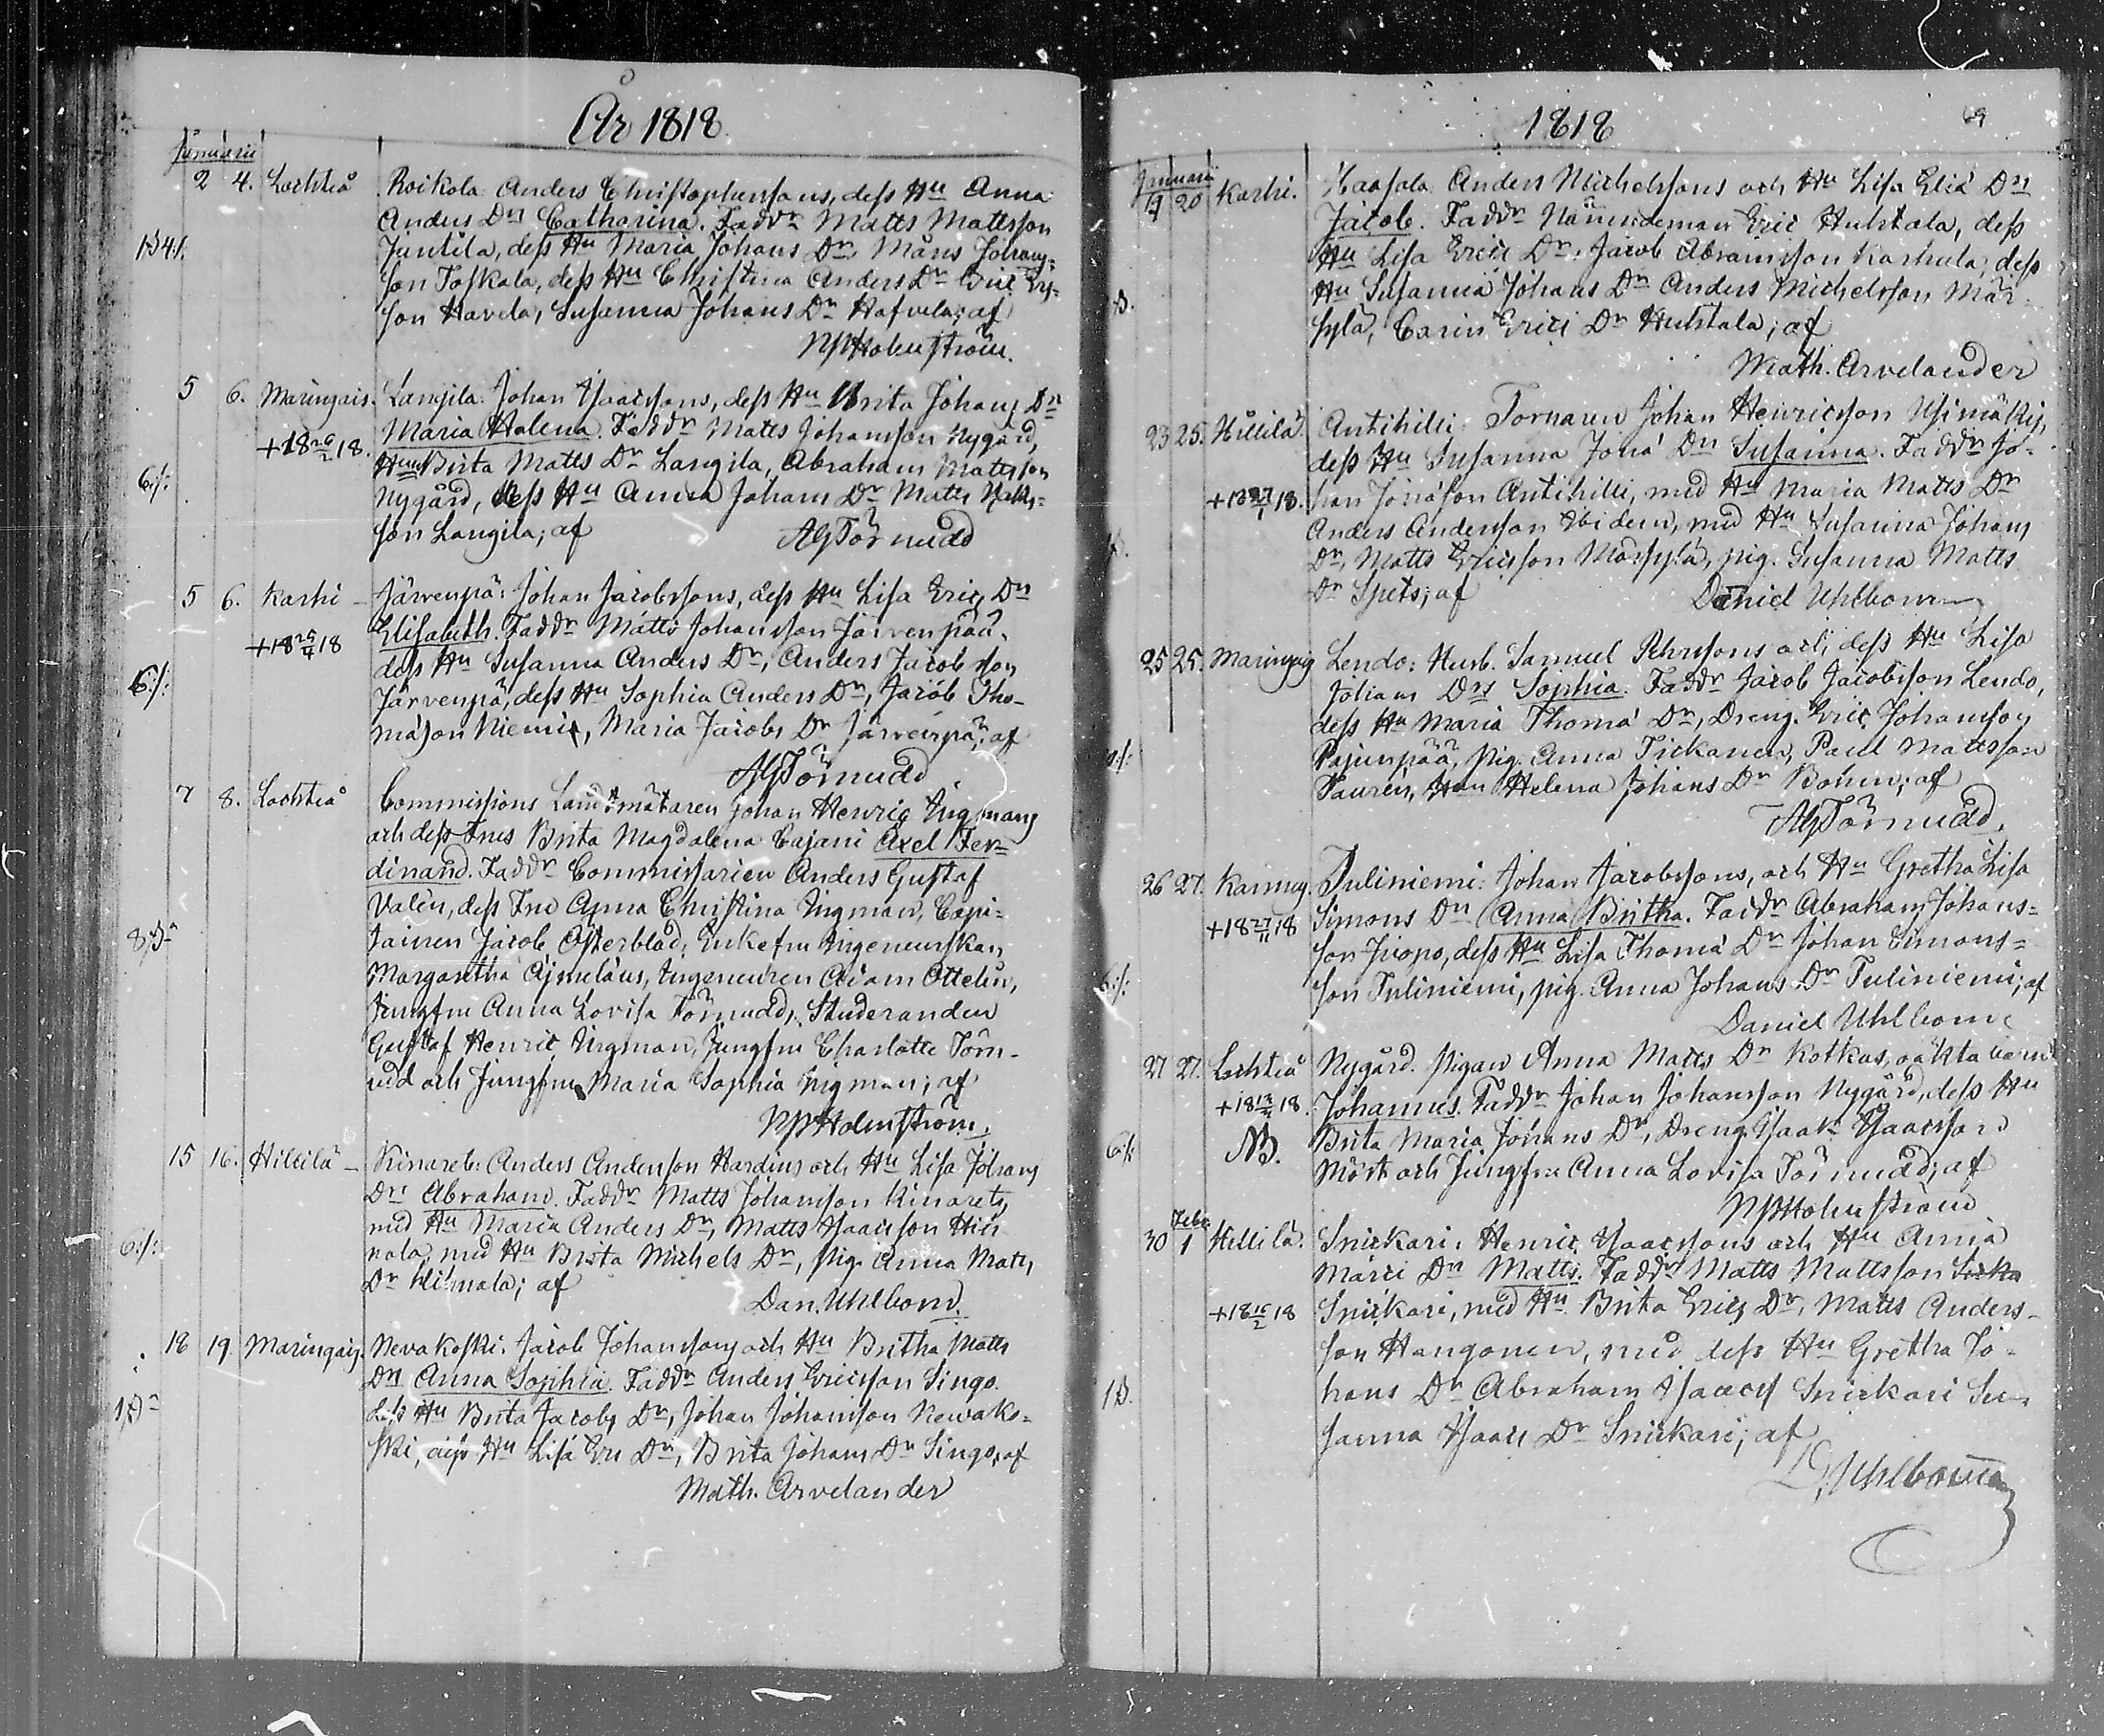 År 1818
Januarii
2 4. Lochteå Roikola: Anders Christophersons, dess Hu Anna
Anders Dr Catharina. Faddr Matts Mattsson
Juntila, dess Hu Maria Johans Dr Måns Johans=
son Taskala, dess Hu Christina Anders Dr Eric
son Havela, Susanna Johans Dr Hafvela; af
Holmström.
5 6. Maringais. Langila: Johan Isaacssons, dess Hu Brita Johans Dr
Maria Halena. Faddr Matts Johansson Nygård,
+18 26/2 18.
Hu Brita Matts Dr Langila, Abraham Mattsson
6:/:
Nygård, dess Hu Anna Johans Dr Matts
son Langila; af Törnudd
5 6. Karhi – Järvenpä: Johan Jacobssons, dess Hu Lisa Eric Dr
Elisabeth. Faddr Matts Johansson Järvenpää,
+18 25/4 18
dess Hu Susanna Anders Dr, Anders Jacobsson
6:/:
Järvenpä, dess Hu Sophia Anders Dr, Jacob Tho-
mäson Niemi, Maria Jacobs Dr Järvenpä; af
Törnudd
7 8. Lochteå Commissions Landtmätaren Johan Henric Ingmans
och dess Frus Brita Magdalena Cajani Axel Fer=
dinand. Faddr Commissarien Anders Gustaf
Valen, dess Fru Anna Christina Ingman, Capi=
tainen Jacob Österblad, Enkefru Ingeneurskan
Margaretha Ajmelæus, Ingeneuren Adam Ottelin,
Jungfru Anna Lovisa Törnudd, Studeranden
Gustaf Henric Ingman, Jungfru Charlotte Törn-
udd och Jungfru Maria Sophia Ingman; af
Holmström.
15 16. Hillilä – Kinaret: Anders Andersson Hardins och Hu Lisa Johans
Dr Abraham. Faddr Matts Johansson Kinarets,
med Hu Maria Anders Dr, Matts Isaacsson Him
6:/:
nala, med Hu Brita Michels Dr, pig. Anna Matts
Dr Himala; af
Dan. Uhlbom.
18 19 Maringais. Nevakoski: Jacob Johanssons och Hu Britha Matts
Dr Anna Sophia. Faddr Anders Ericsson Singo
dess Hu Brita Jacobs Dr, Johan Johansson Newako-
ski, dess Hu Lisa Eric Dr, Brita Johans Dr Singo, af
Math. Arvelander
1818
69
Januarii
19 20 Karhi. Haapala: Anders Michelssons och Hu Lisa Eliä Drs
Jacob. Faddr Nämndeman Eric Huhtala, dess
Hu Lisa Erici Dr, Jacob Abramsson Karhula, dess
Hu Susanna Johans Dr Anders Michelsson Mär-
sylä, Carin Erici Dr Huhtala; af
Math. Arvelander
23 25. Hillilä. Antihilli: Tornaren Johan Henricsson Usimäkis,
dess Hu Susanna Jonä Dr Susanna. Faddr Jo-
+18 27/1 18.
han Jonäson Antihilli, med Hu Maria Matts Dr
Anders Andersson Ibidem, med Hu Susanna Johans
Dr, Matts Ericsson Märsylä, pig. Susanna Matts
Dr Spets; af Daniel Uhlbom
25 25. Maringais Lendo: Husb. Samuel Pehrssons och dess Hu Lisa
Johans Drs Sophia. Faddr Jacob Jacobsson Lendo,
dess Hu Maria Thomä Dr, Dreng. Eric Johansson
Pajunpää, pig. Anna Tickanen, Paul Mattsson
Paurén, Hu Helena Johans Dr Bohm; af
Törnudd.
26 27. Kannus. Tuliniemi: Johan Jacobssons, och Hu Gretha Lisa
Simons Dr Anna Britha. Faddr Abraham Johans=
+18 27/11 18
son Jicopo, dess Hu Lisa Thomä Dr Johan Simons=
6:/:
son Tuliniemi, pig. Anna Johans Dr Tuliniemi; af
Daniel Uhlbom
27 27. Lochteå Nygård. Pigan Anna Matts Dr Kotkas, oäkta barn
Johannes. Faddr Johan Johansson Nygård, dess Hu
NB.
6:/:
Brita Maria Johans Dr, Dreng Isaak Isaacsson
Mört och Jungfru Anna Lovisa Törnudd; af
Holmström
Febr
30 1 Hillilä. Snickari: Henric Isaacssons och Hu Anna
Marci Dr Matts. Faddr Matts Mattsson
+18 15/2 18
Snickari, med Hu Brita Erics Dr, Matts Anders-
son Hangonen, med dess Hu Gretha Jo-
hans Dr Abraham Isaacss Snickari Su-
sanna Isaacs Dr Snickari; af
D, Uhlbom